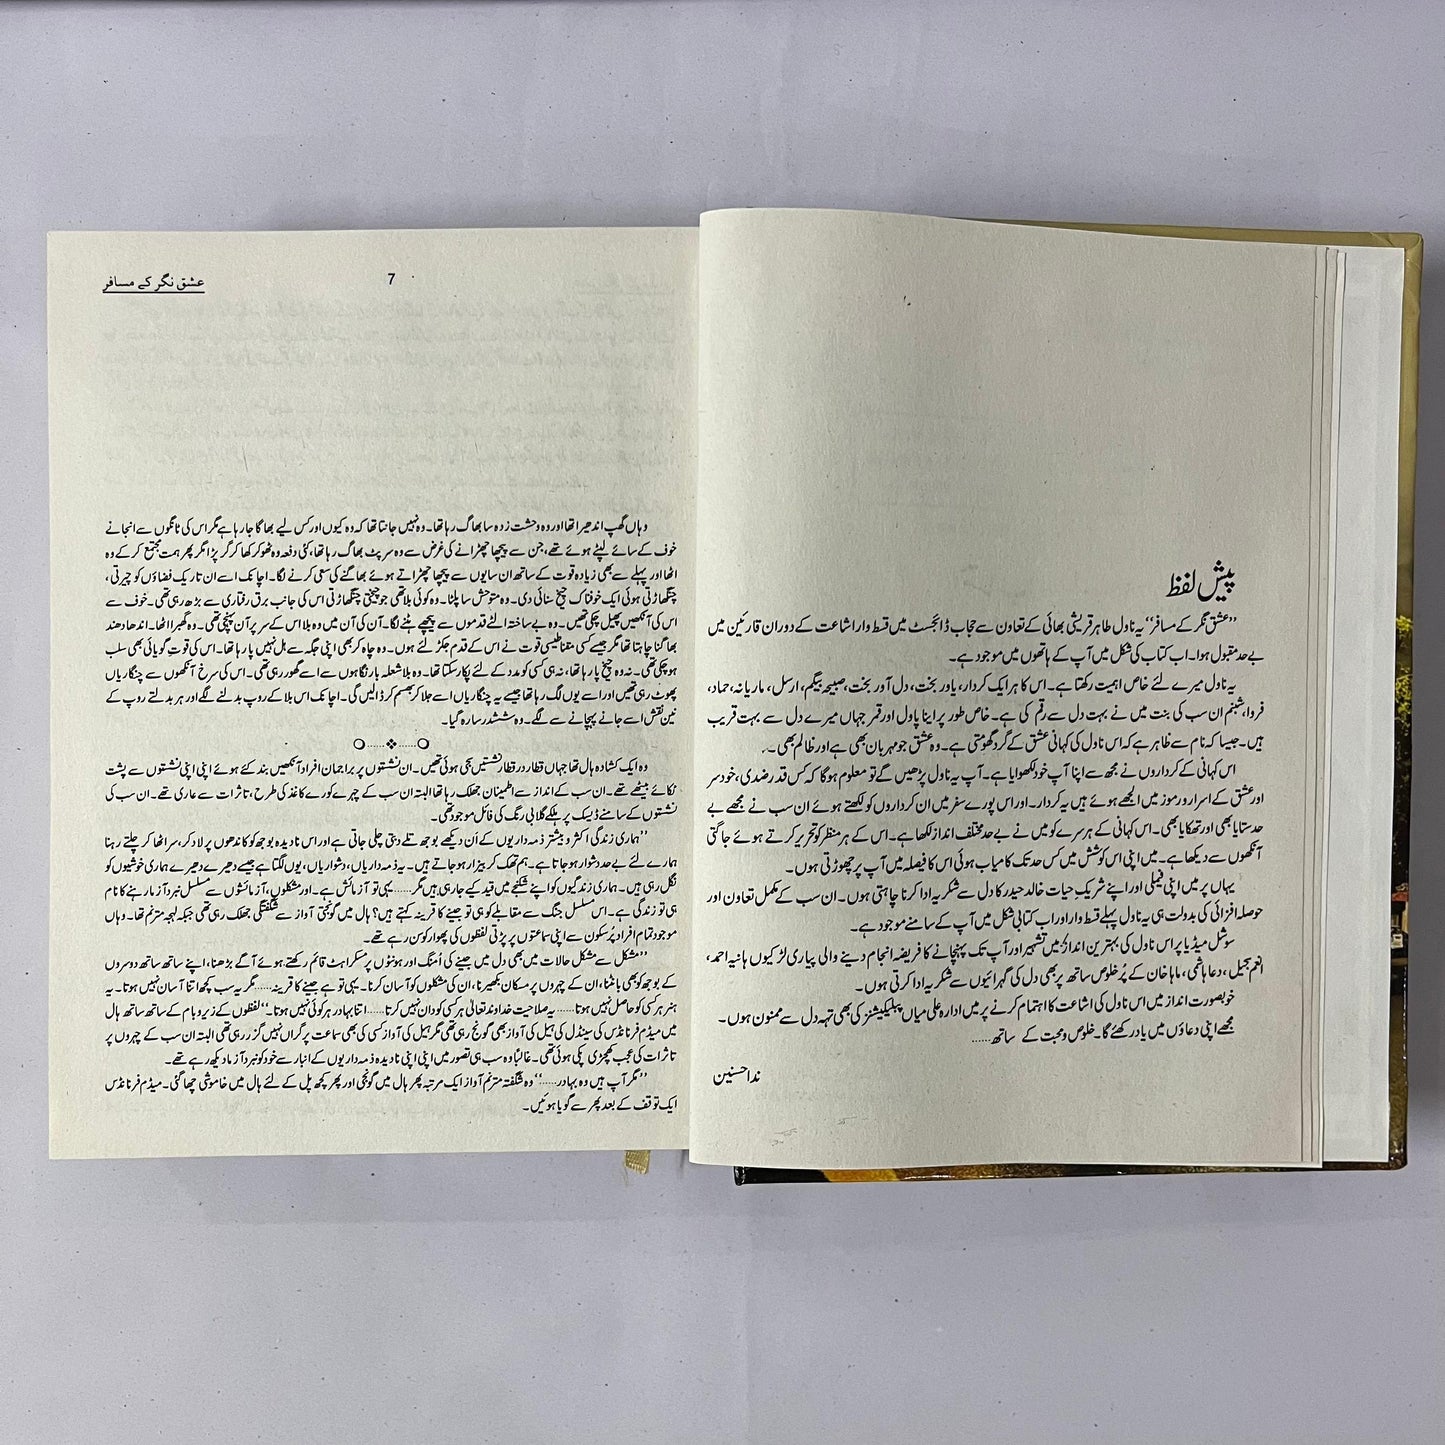 پیش لفظ
”عشق نگر کے مسافر“ یہ ناول طاہر قریشی بھائی کے تعاون سے حجاب ڈائجسٹ میں قسط وار اشاعت کے دوران قارئین میں
بے حد مقبول ہوا۔ اب کتاب کی شکل میں آپ کے ہاتھوں میں موجود ہے۔
یہ ناول میرے لئے خاص اہمیت رکھتا ہے۔ اس کا ہر ایک کردار، یاور بخت، دل آور بخت، صبیحہ بیگم، ارسل، ماریانہ، حماد،
فروا، شبنم ان سب کی بنت میں نے بہت دل سے رقم کی ہے۔ خاص طور پر اینا پاول اور قمر جہاں میرے دل سے بہت قریب
ہیں۔ جیسا کہ نام سے ظاہر ہے کہ اس ناول کی کہانی عشق کے گرد گھومتی ہے۔ وہ عشق جو مہربان بھی ہے اور ظالم بھی۔
اس کہانی کے کرداروں نے مجھ سے اپنا آپ خود لکھوایا ہے۔ آپ یہ ناول پڑھیں گے تو معلوم ہوگا کہ کس قدر ضدی، خود سر
اور عشق کے اسرار و رموز میں الجھے ہوئے ہیں یہ کردار۔ اور اس پورے سفر میں ان کرداروں کو لکھتے ہوئے ان سب نے مجھے بے
حد ستایا بھی اور تھکایا بھی۔ اس کہانی کے ہر سرے کو میں نے بے حد مختلف انداز لکھا ہے۔ اس کے ہر منظر کو تحریر کرتے ہوئے جاگتی
آنکھوں سے دیکھا ہے۔ میں اپنی اس کوشش میں کس حد تک کامیاب ہوئی اس کا فیصلہ میں آپ پر چھوڑتی ہوں۔
یہاں پر میں اپنی فیملی اور اپنے شریکِ حیات خالد حیدر کا دل سے شکریہ ادا کرنا چاہتی ہوں۔ ان سب کے مکمل تعاون اور
حوصلہ افزائی کی بدولت ہی یہ ناول پہلے قسط وار اور اب کتابی شکل میں آپ کے سامنے موجود ہے۔
سوشل میڈیا پر اس ناول کی بہترین انداز میں تشہیر اور آپ تک پہنچانے کا فریضہ انجام دینے والی پیاری لڑکیوں ہانیہ احمد،
انعم جمیل، دعا ہاشمی، ماہا خان کے پُر خلوص ساتھ پر بھی دل کی گہرائیوں سے شکریہ ادا کرتی ہوں۔
خوبصورت انداز میں اس ناول کی اشاعت کا اہتمام کرنے پر میں ادارہ علی میاں پبلیکیشنز کی بھی تہہ دل سے ممنون ہوں۔
مجھے اپنی دعاؤں میں یاد رکھئے گا۔ خلوص و محبت کے ساتھ......
ندا حسنین
7
عشق نگر کے مسافر
وہاں گھپ اندھیرا تھا اور وہ وحشت زدہ سا بھاگ رہا تھا۔ وہ نہیں جانتا تھا کہ وہ کیوں اور کس لیے بھاگا جا رہا ہے مگر اس کی ٹانگوں سے انجانے
خوف کے سائے لپٹے ہوئے تھے، جن سے پیچھا چھڑانے کی غرض سے وہ سرپٹ بھاگ رہا تھا، کئی دفعہ وہ ٹھوکر کھا کر گر پڑا مگر پھر ہمت مجتمع کر کے وہ
اٹھا اور پہلے سے بھی زیادہ قوت کے ساتھ ان سایوں سے پیچھا چھڑاتے ہوئے بھاگنے کی سعی کرنے لگا۔ اچانک اسے ان تاریک فضاؤں کو چیرتی،
چنگھاڑتی ہوئی ایک خوفناک چیخ سنائی دی۔ وہ متوحش سا پلٹا۔ وہ کوئی بلا تھی جو چیختی چنگھاڑتی اس کی جانب برق رفتاری سے بڑھ رہی تھی۔ خوف سے
اس کی آنکھیں پھیل چکی تھیں۔ وہ بے ساختہ الٹے قدموں سے پیچھے ہٹنے لگا۔ آن کی آن میں وہ بلا اس کے سر پر آن پہنچی تھی۔ وہ گھبرا اٹھا۔ اندھا دھند
بھاگنا چاہتا تھا مگر جیسے کسی مقناطیسی قوت نے اس کے قدم جکڑ لئے ہوں۔ وہ چاہ کر بھی اپنی جگہ سے ہل نہیں پا رہا تھا۔ اس کی قوتِ گویائی بھی سلب
ہو چکی تھی۔ نہ وہ چیخ پا رہا تھا، نہ ہی کسی کو مدد کے لئے پکار سکتا تھا۔ بلا شعلہ بار نگاہوں سے اسے گھور رہی تھی۔ اس کی سرخ آنکھوں سے چنگاریاں
پھوٹ رہی تھیں اور اسے یوں لگ رہا تھا جیسے یہ چنگاریاں اسے جلا کر بھسم کر ڈالیں گی۔ اچانک اس بلا کے روپ بدلنے لگے اور ہر بدلتے روپ کے
نین نقش اسے جانے پہچانے سے لگے۔ وہ ششدر سا رہ گیا۔
وہ ایک کشادہ ہال تھا جہاں قطار در قطار نشستیں سجی ہوئی تھیں۔ ان نشستوں پر براجمان افراد آنکھیں بند کئے ہوئے اپنی اپنی نشستوں سے پشت
ٹکائے بیٹھے تھے۔ ان سب کے انداز سے اطمینان جھلک رہا تھا البتہ ان سب کے چہرے کورے کاغذ کی طرح، تاثرات سے عاری تھے۔ ان سب کی
نشستوں کے سامنے ڈیسک پر ہلکے گلابی رنگ کی فائل موجود تھی۔
”ہماری زندگی اکثر و بیشتر ذمہ داریوں کے اُن دیکھے بوجھ تلے دبتی چلی جاتی ہے اور اس نادیدہ بوجھ کو کاندھوں پر لاد کر، سر اٹھا کر چلتے رہنا
ہمارے لئے بے حد دشوار ہو جاتا ہے۔ ہم تھک کر بیزار ہو جاتے ہیں۔ یہ ذمہ داریاں، دشواریاں، یوں لگتا ہے جیسے دھیرے دھیرے ہماری خوشیوں کو
نگل رہی ہیں۔ ہماری زندگیوں کو اپنے شکنجے میں قید کیے جا رہی ہیں مگر...... یہی تو آزمائش ہے۔ اور مشکلوں، آزمائشوں سے مسلسل نبرد آزما رہنے کا نام
ہی تو زندگی ہے۔ اس مسلسل جنگ سے مقابلے کو ہی تو جینے کا قرینہ کہتے ہیں؟ ہال میں گونجتی آواز سے شگفتگی جھلک رہی تھی جبکہ لہجہ مترنم تھا۔ وہاں
موجود تمام افراد پُرسکون سے اپنی سماعتوں پر پڑتی لفظوں کی پھوار کو سن رہے تھے۔
”مشکل سے مشکل حالات میں بھی دل میں جینے کی اُمنگ اور ہونٹوں پر مسکراہٹ قائم رکھتے ہوئے آگے بڑھنا، اپنے ساتھ ساتھ دوسروں
کے بوجھ کو بھی بانٹنا، ان کے چہروں پر مسکان بکھیرنا، ان کی مشکلوں کو آسان کرنا۔ یہی تو ہے جینے کا قرینہ...... مگر یہ سب کچھ اتنا آسان نہیں ہوتا۔ یہ
ہنر ہر کسی کو حاصل نہیں ہوتا...... یہ صلاحیت خداوند تعالیٰ ہر کسی کو دان نہیں کرتا...... اتنا بہادر ہر کوئی نہیں ہوتا۔“ لفظوں کے زیر و بام کے ساتھ ساتھ ہال
میں میڈم فرنانڈس کی سینڈل کی ہیل کی آواز بھی گونج رہی تھی مگر ہیل کی آواز کسی کی بھی سماعت پر گراں نہیں گزر رہی تھی البتہ ان سب کے چہروں پر
تاثرات کی عجب کھچڑی پکی ہوئی تھی۔ غالباً وہ سب ہی تصور میں اپنی اپنی نادیدہ ذمہ داریوں کے انبار سے خود کو نبرد آزما دیکھ رہے تھے۔
”مگر آپ ہیں وہ بہادر......“ وہ شگفتہ مترنم آواز ایک مرتبہ پھر ہال میں گونجی اور پھر کچھ پل کے لئے ہال میں خاموشی چھا گئی۔ میڈم فرنانڈس
ایک توقف کے بعد پھر سے گویا ہوئیں۔